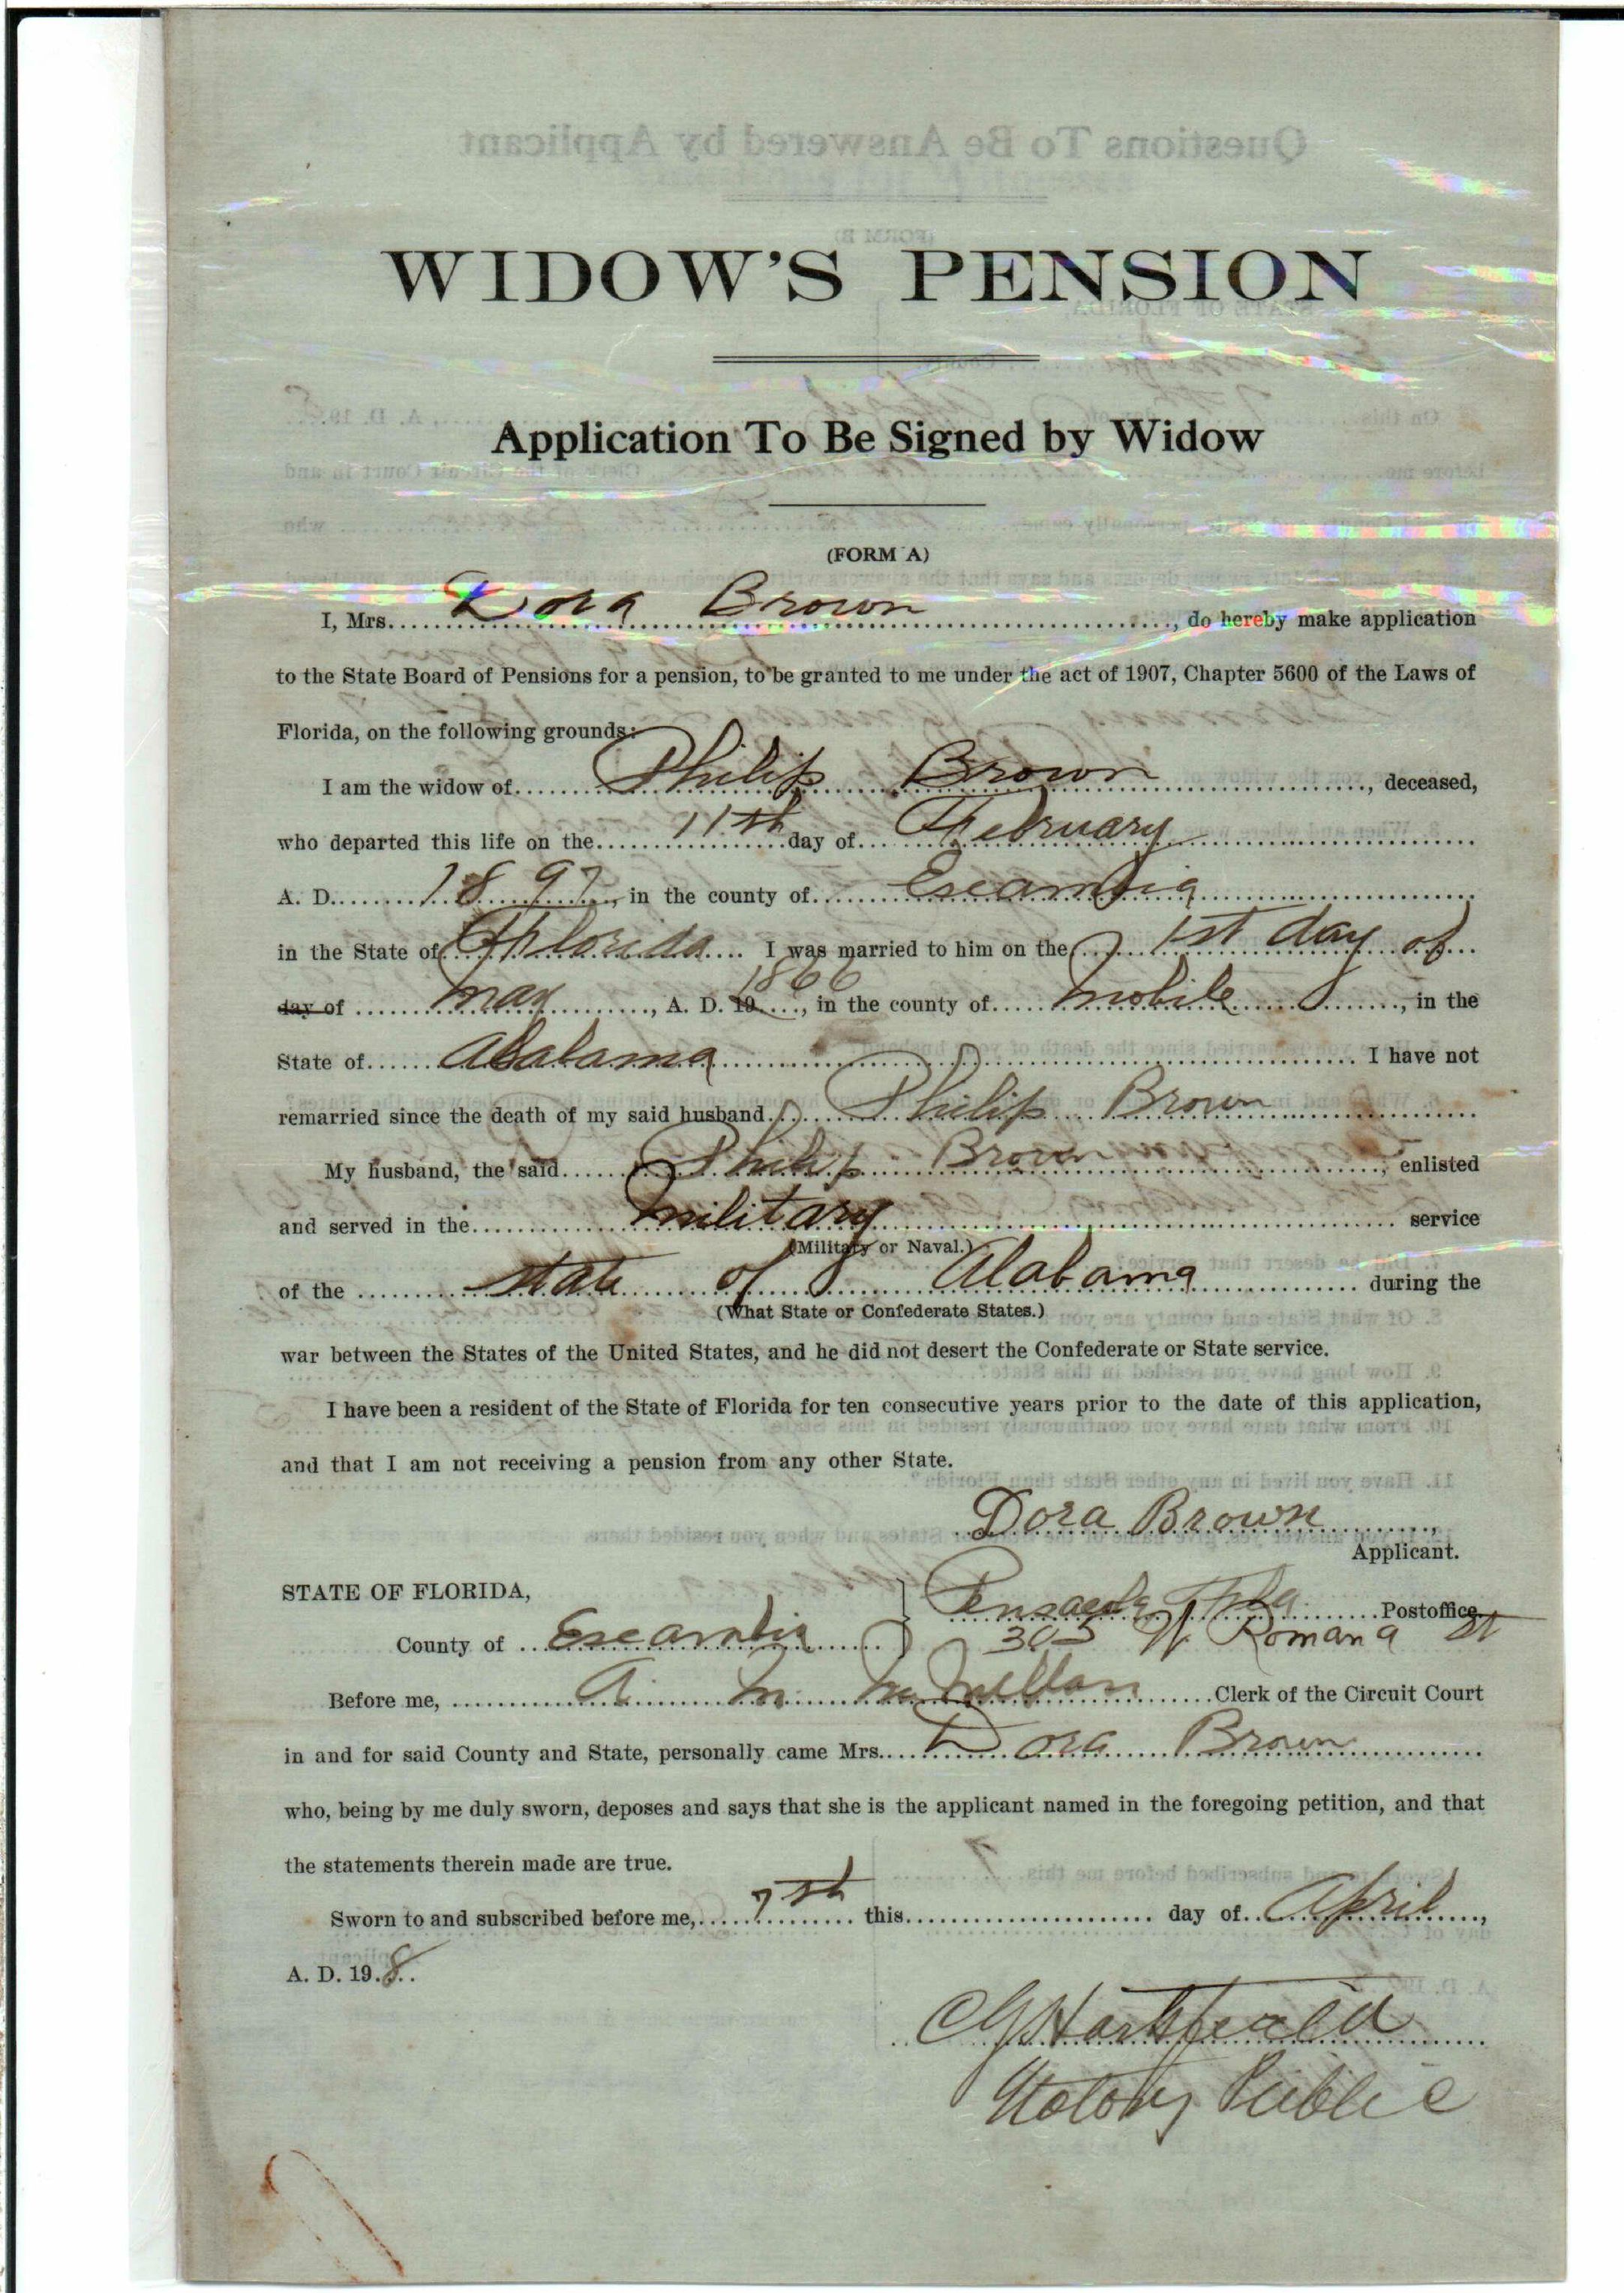 WIDOW'S PENSION
Application To Be Signed by Widow
(FORM A)
I, Mrs. Dora Brown, do hereby make application
to the State Board of Pensions for a pension, to be granted to me under the act of 1907, Chapter 5600 of the Laws of
Florida, on the following grounds:
I am the widow of Philip Brown, deceased,
who departed this life on the 11th day of February
A. D. 1897, in the county of Escambia
in the State of Florida. I was married to him on the 1st day of
day of May, A. D. 19 1866, in the county of Mobile, in the
State of Alabama I have not
remarried since the death of my said husband Philip Brown
My husband, the said Philip Brown, enlisted
and served in the military service
(Military or Naval.)
of the state of Alabama during the
(What State or Confederate States.)
war between the States of the United States, and he did not desert the Confederate or State service.
I have been a resident of the State of Florida for ten consecutive years prior to the date of this application,
and that I am not receiving a pension from any other State.
Dora Brown,
Applicant.
STATE OF FLORIDA,
Pensacola Fla Postoffice.
County of Escambia
305 W. Romana St
Before me, A. M. McMillan Clerk of the Circuit Court
in and for said County and State, personally came Mrs. Dora Brown
who, being by me duly sworn, deposes and says that she is the applicant named in the foregoing petition, and that
the statements therein made are true.
Sworn to and subscribed before me, 7th this day of April,
A. D. 19 8
Notary Public